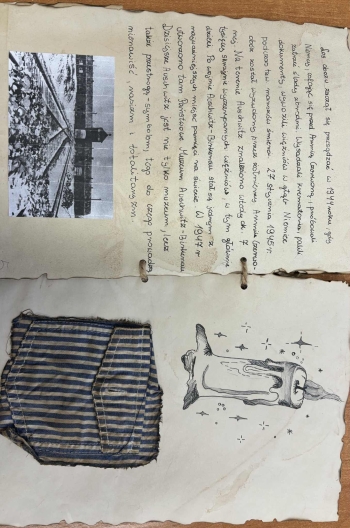 Los obozu zaczął się przesądzać w 1944 roku, gdy
Niemcy cofając się przed Armią Czerwoną, próbowali
zatrzeć ślady zbrodni. Wysadzali krematoria, palili
dokumenty, wywozili więźniów w głąb Niemiec
podczas tzw. marszów śmierci. 27 stycznia 1945 r.
obóz został wyzwolony przez żołnierzy Armii Czerwo-
nej. Na terenie Auschwitz znaleziono wtedy ok. 7
tysięcy skrajnie wyczerpanych więźniów, w tym głównie
dzieci. Po wojnie Auschwitz-Birkenau stał się jednym z
najważniejszych miejsc pamięci na świecie. W 1947 r.
utworzono tam Państwowe Muzeum Auschwitz-Birkenau
Dzisiejsze Auschwitz jest nie tylko muzeum, lecz
także przestrogą - symbolem tego do czego prowadzą
nienawiść, rasizm i totalitaryzm.